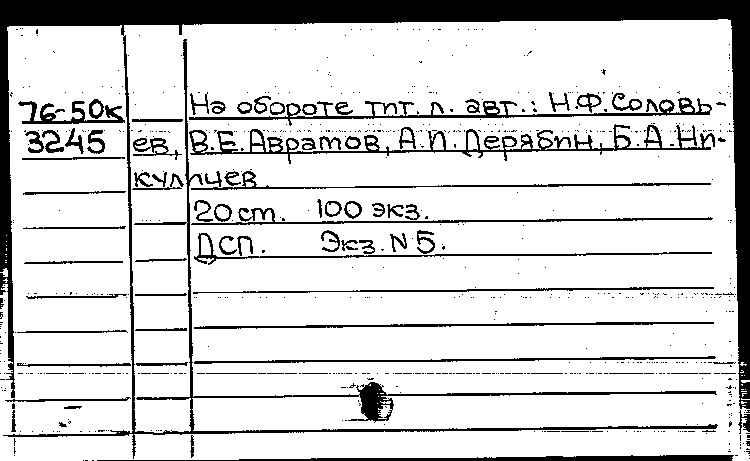 76-50к На обороте тит. л. авт.: Н.Ф.Соловь-
3245 ев, В.Е.Авратов, А.П.Дерябин, Б.А.Ни-
кулицев.
20 ст. 100 экз.
ДСП. Экз. N 5.